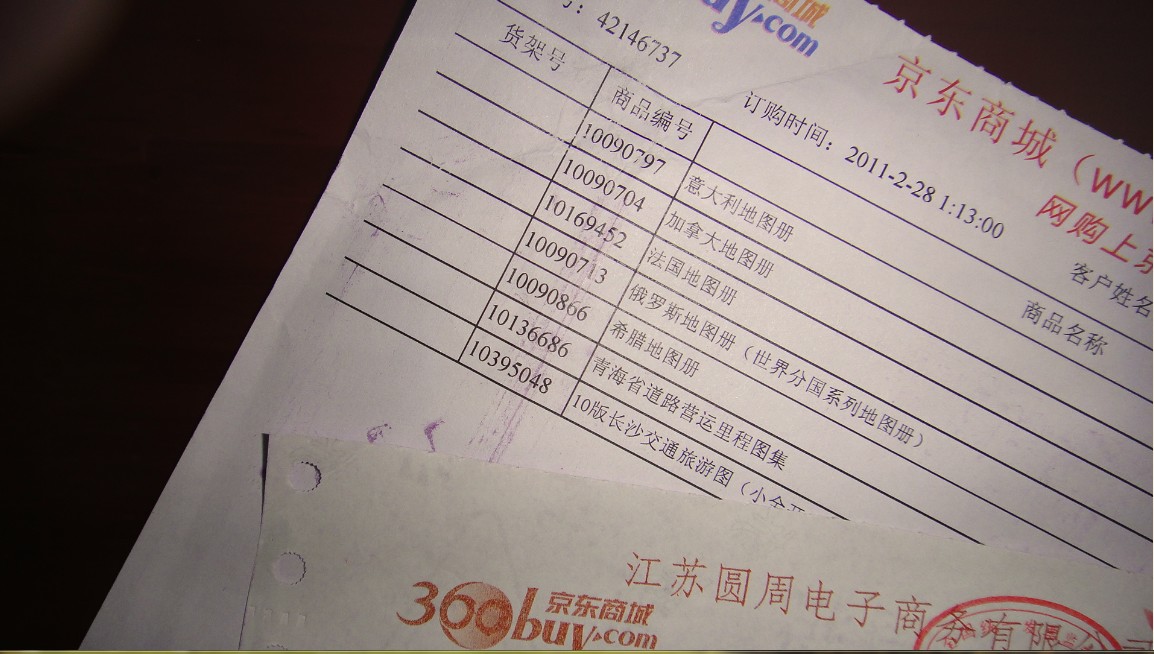 buy.com
商城
京东商城（ww
网购上京
：42146737
订购时间：2011-2-28 1:13:00
客户姓名
货架号 商品编号 商品名称
10090797 意大利地图册
10090704 加拿大地图册
10169452 法国地图册
10090713 俄罗斯地图册（世界分国系列地图册）
10090866 希腊地图册
10136686 青海省道路营运里程图集
10395048 10版长沙交通旅游图（小全开
江苏圆周电子商务有限公司
360buy.com
京东商城